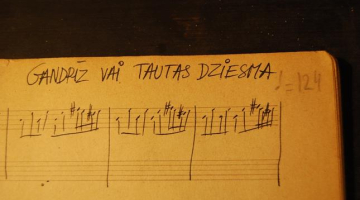 GANDRĪZ VAI TAUTAS DZIESMA
♩=124